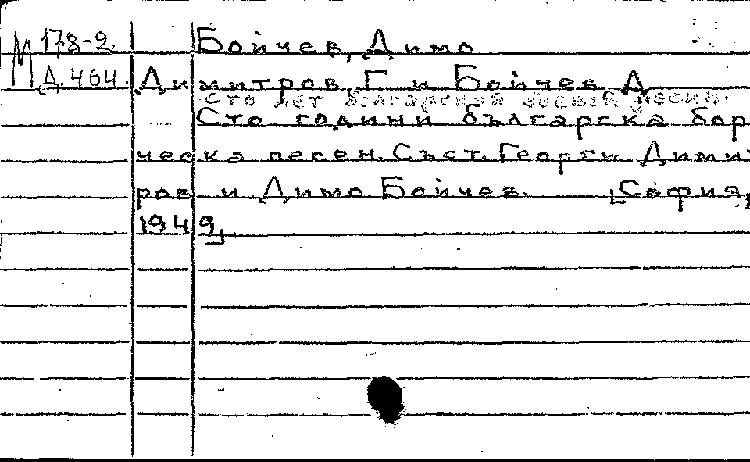 М 178-2. Бойчев, Димо
Д 464. Димитров, Г. и Бойчев Д.
Сто лет болгарской боевой песни.
Сто години българска бор
ческа песен. Съст. Георги Димит
ров и Димо Бойчев. [София,
1949]